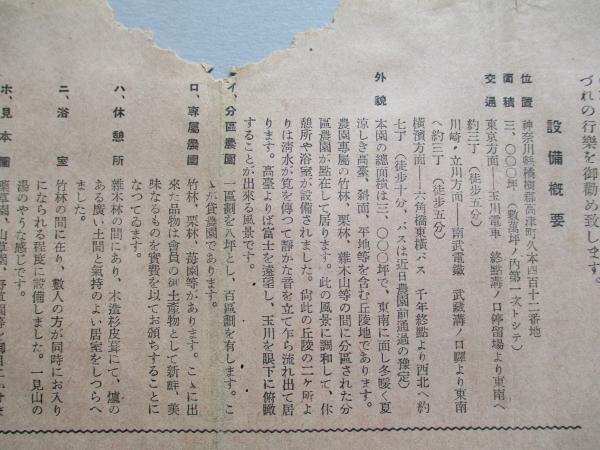 づれの行樂を御勸め致します。
設備概要
位置　神奈川縣橘樹郡高津町久本四百十二番地
面積　三、〇〇〇坪（數萬坪ノ内第一次トシテ）
交通　東京方面――玉川電車　終點溝ノ口停留場より東南へ
約三丁（徒歩五分）
川崎・立川方面――南武電鐵　武藏溝ノ口驛より東南
へ約三丁（徒歩五分）
横濱方面――六角橋東横バス　千年終點より西北へ約
七丁（徒歩十分、バスは近日農園前通過の豫定）
外貌　本園の總面積は三、〇〇〇坪で、東南に面し冬暖く夏
涼しき高臺、斜面、平地等を含む丘陵地であります。
農園專屬の竹林、栗林、雜木山等の間に分區された分
區農園が點在して居ります。此の風景に調和して、休
憩所や浴室が設備されました。尚此の丘陵の二ヶ所よ
りは淸水が筧を傳つて靜かな音を立て乍ら流れ出て居
ります。高臺よりは富士を遠望し、玉川を眼下に俯瞰
することが出來る風景です。
イ、分區農園　一區劃を八坪とし、百區劃を有します。こ
が貸農園であります。
ロ、專屬農園　竹林、栗林、苺園等があります。こゝに出
來た品物は會員の御土產物として新鮮、美
味なるものを實費を以てお頒ちすることに
なつてゐます。
ハ、休憩所　雜木林の間にあり、木造杉皮葺にて、爐の
ある廣い土間と氣持のよい居室をしつらへ
ました。
ニ、浴室　竹林の間に在り、數人の方が同時にお入り
になられる程度に設備しました。一見山の
湯のやうな感じです。
ホ、見本園　藥草園、山草園、野草園等を御目にかけま